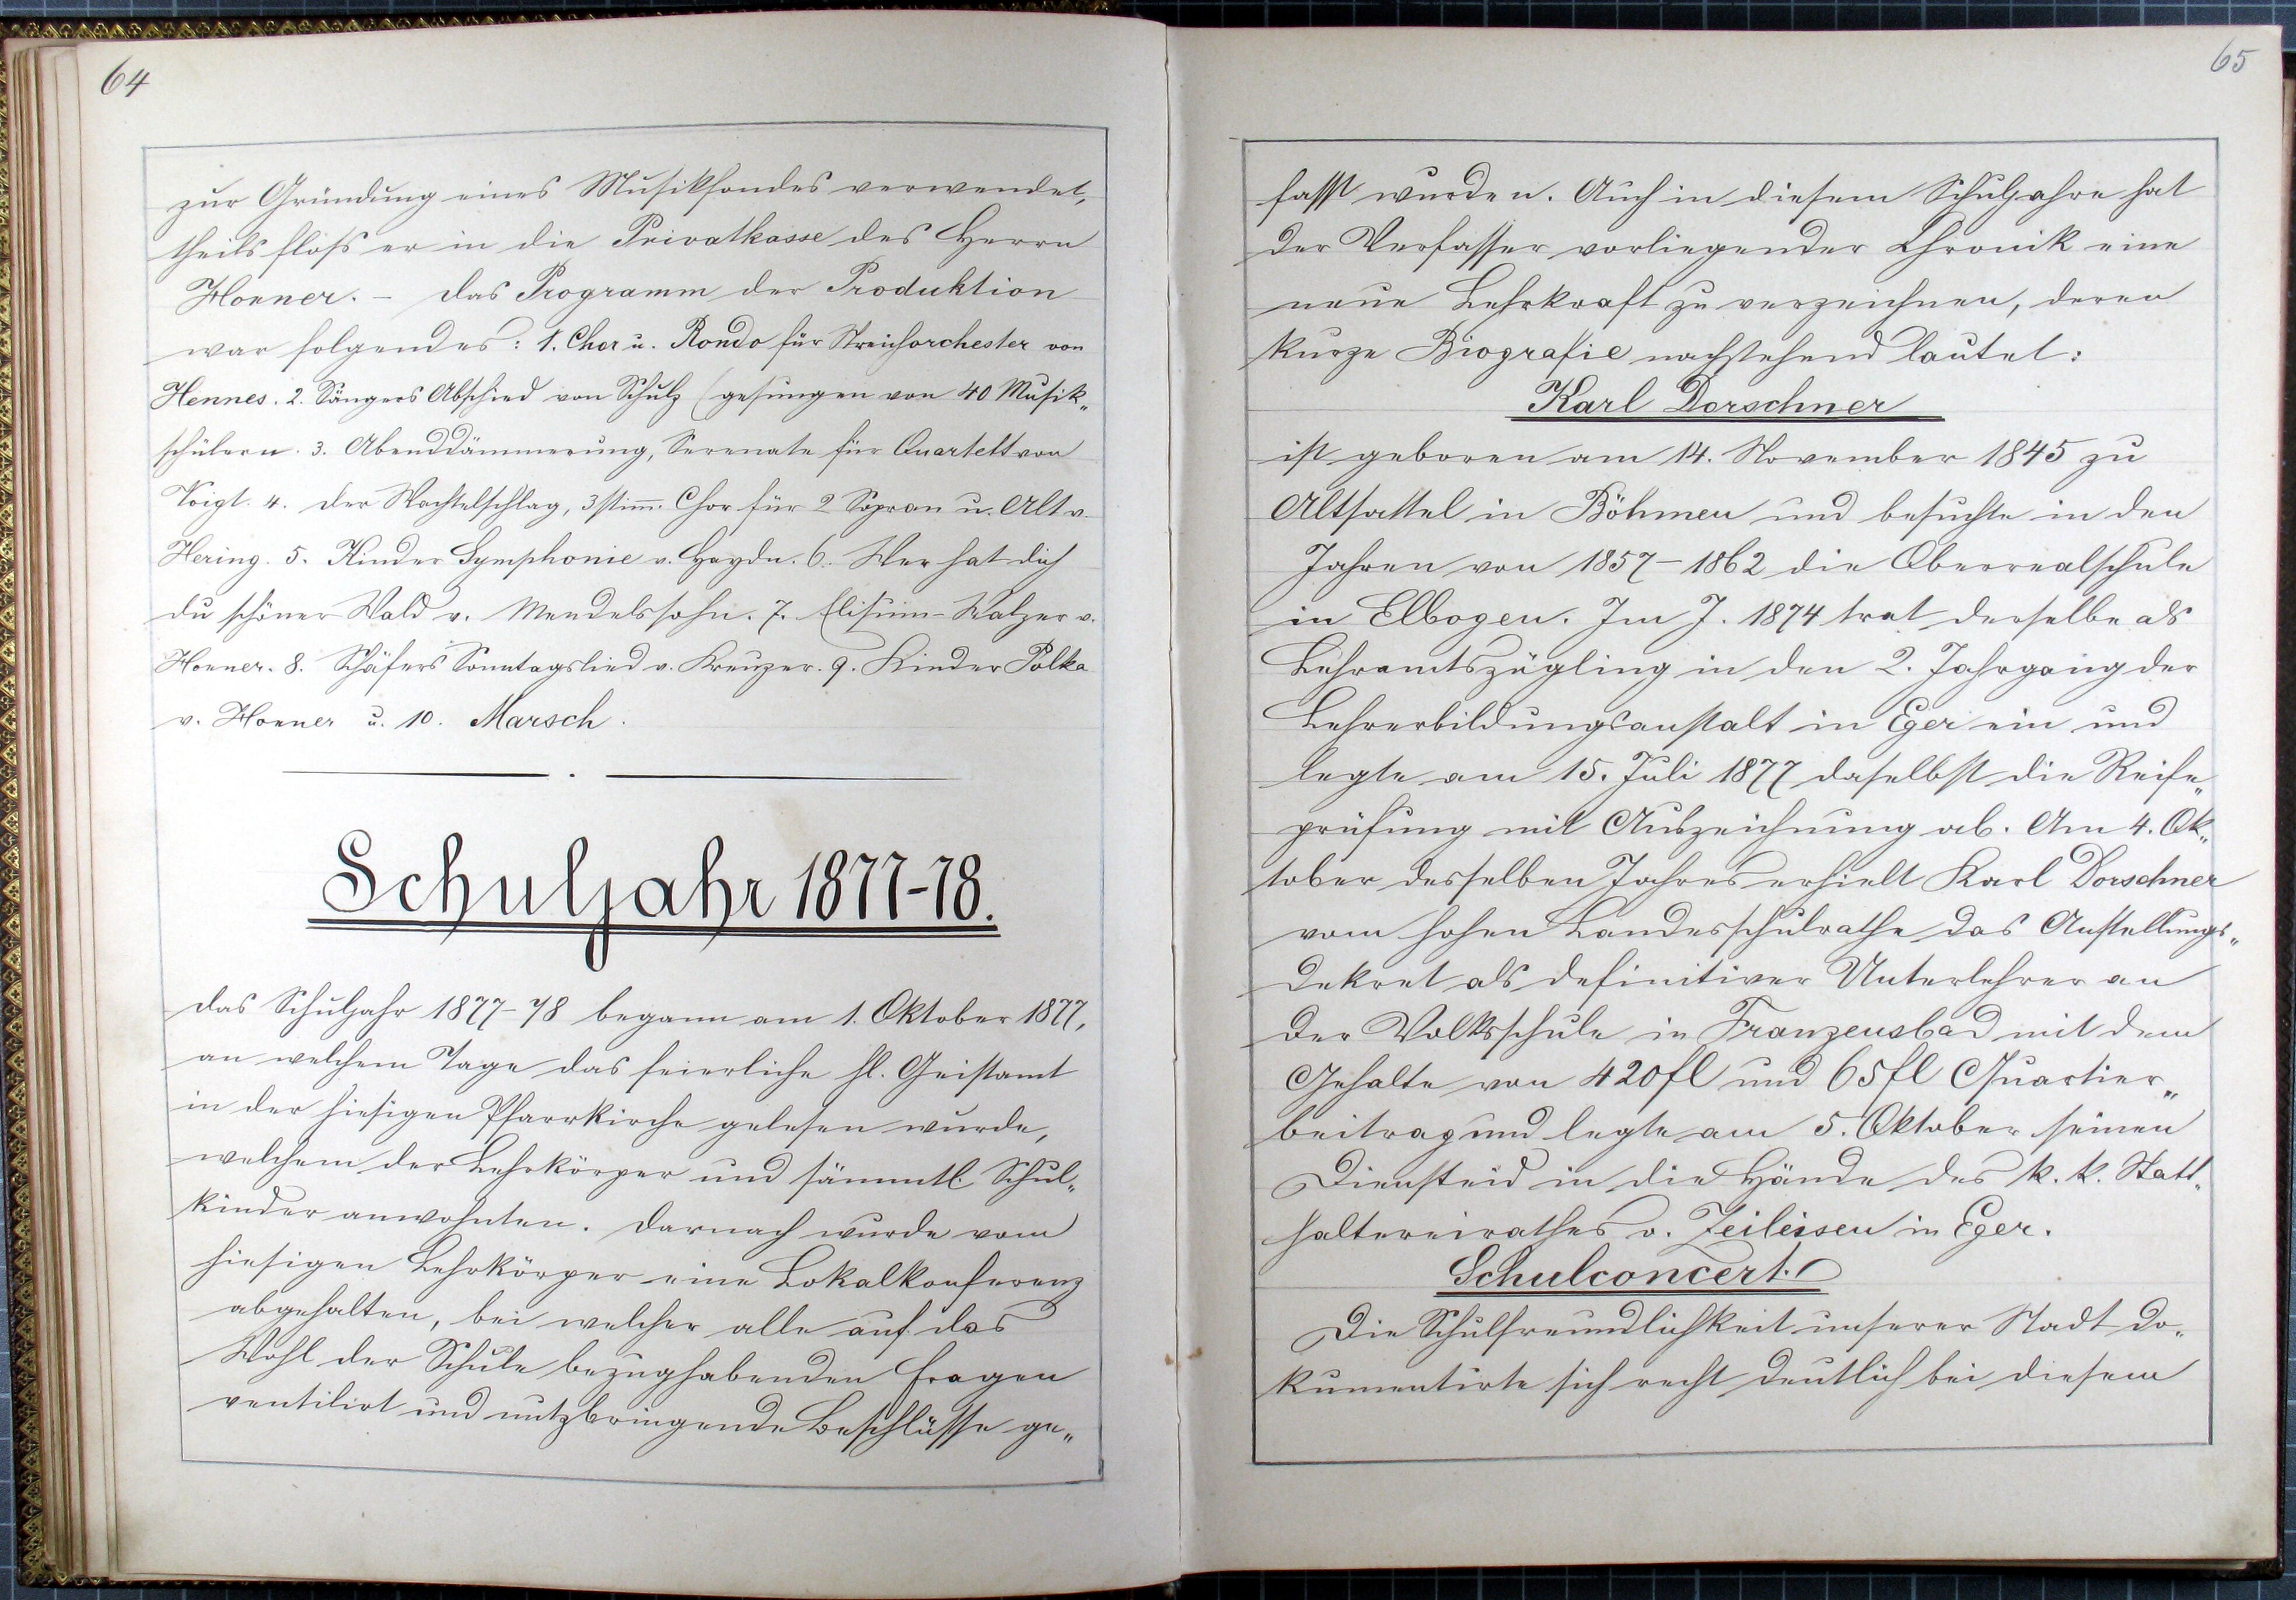 64
zur Gründung eines Musikfondes verwendet,
theils floß er in die Privatkasse des Herrn
Hoener. – Das Programm der Produktion
war folgendes: 1. Chor u. Rondo für Streichorchester von
Hennes. 2. Sängers Abschied von Schulz (gesungen von 40 Musik„
schülern. 3. Abenddämmerung, Serenate für Quartett von
Voigt. 4. Der Wachtelschlag, 3stimm. Chor für 2 Sopran u. Alt v.
Hering. 5. Kinder Symphonie v. Haydn. 6. Wer hat dich
du schöner Wald v. Mendelssohn. 7. Elisium-Walzer v.
Hoener. 8. Schäfers Sonntagslied v. Kreuzer. 9. Kinder Polka
v. Hoener u. 10. Marsch.
Schuljahr 1877-78.
Das Schuljahr 1877-78 begann am 1. Oktober 1877,
an welchem Tage das feierliche hl. Geistamt
in der hiesigen Pfarrkirche gelesen wurde,
welchem der Lehrkörper und sämmtl. Schul„
kinder anwohnten. Darnach wurde vom
hiesigen Lehrkörper eine Lokalkonferenz
abgehalten, bei welcher alle auf das
Wohl der Schule bezughabenden Fragen
ventilirt und nutzbringende Beschlüsse ge„
65
fasst wurden. Auch in diesem Schuljahre hat
der Verfasser vorliegender Chronik eine
neue Lehrkraft zu verzeichnen, deren
kurze Biografie nachstehend lautet:
Karl Dorschner
ist geboren am 14. November 1845 zu
Altsattel in Böhmen und besuchte in den
Jahren von 1857-1862 die Oberrealschule
in Elbogen. Im J. 1874 trat derselbe als
Lehramtszögling in den 2. Jahrgang der
Lehrerbildungsanstalt in Eger ein und
legte am 15. Juli 1877 daselbst die Reife„
prüfung mit Auszeichnung ab. Am 4. Ok„
tober desselben Jahres erhielt Karl Dorschner
vom hohen Landesschulrathe das Anstellungs„
dekret als definitiver Unterlehrer an
der Volksschule in Franzensbad mit dem
Gehalte von 420fl und 65fl Quartier„
beitrag und legte am 5. Oktober seinen
Diensteid in die Hände des k. k. Statt„
haltereirathes v. Zeileisen in Eger.
Schulconcert.
Die Schulfreundlichkeit unserer Stadt do„
kumentirte sich recht deutlich bei diesem